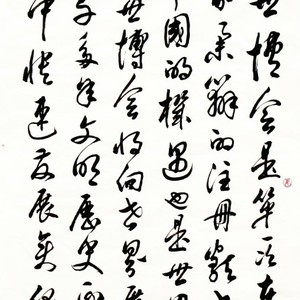 世博会是第一次在
家举办的注册类
中国的機遇也是世界
世博会将向世界展
千多年文明歷史
中快速发展